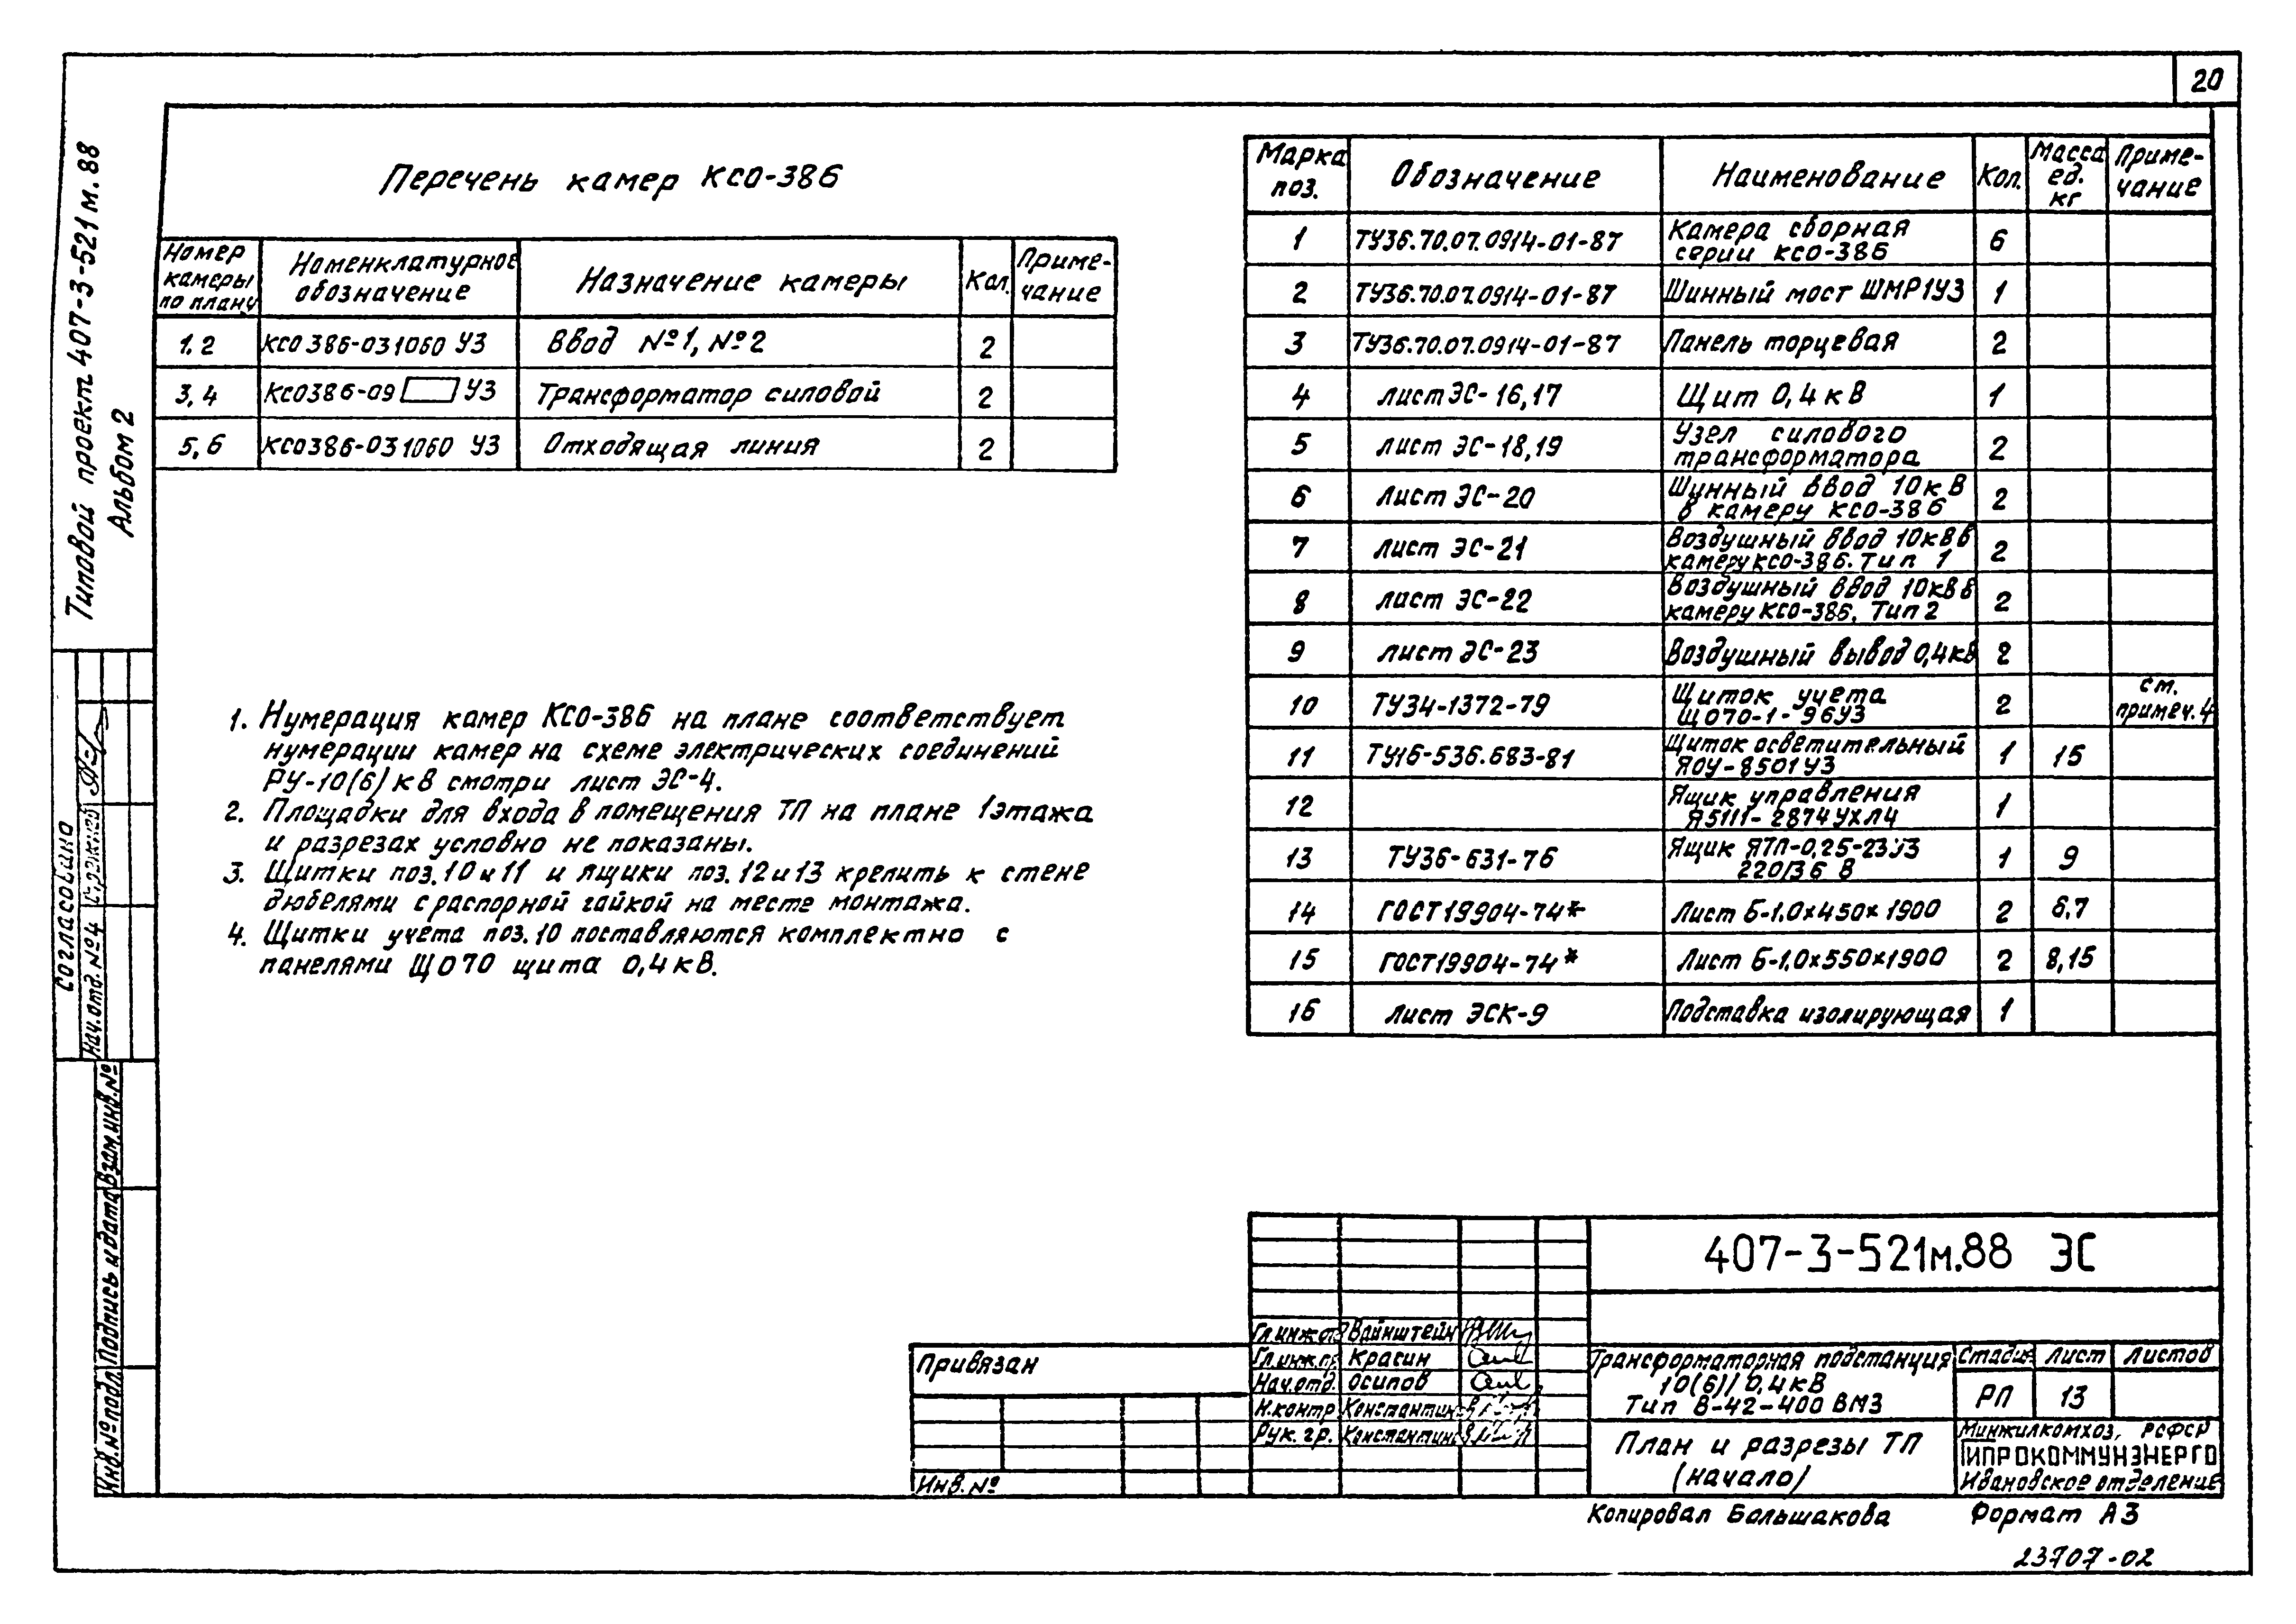 20
Типовой проект 407-3-521м.88
Альбом 2
Перечень камер КСО-386
Номер камеры по плану | Номенклатурное обозначение | Назначение камеры | Кол. | Примечание
1.2 | КСО386-031060 У3 | Ввод №1, №2 | 2
3,4 | КСО386-09 У3 | Трансформатор силовой | 2
5,6 | КСО386-031060 У3 | Отходящая линия | 2
1. Нумерация камер КСО-386 на плане соответствует
нумерации камер на схеме электрических соединений
РУ-10(6)кВ смотри лист ЭС-4.
2. Площадки для входа в помещения ТП на плане 1этажа
и разрезах условно не показаны.
3. Щитки поз.10 и 11 и ящики поз.12 и 13 крепить к стене
дюбелями с распорной гайкой на месте монтажа.
4. Щитки учёта поз.10 поставляются комплектно с
панелями ЩО70 щита 0,4кВ.
Марка поз. | Обозначение | Наименование | Кол. | Масса ед. кг | Примечание
1 | ТУ36.70.07.0914-01-87 | Камера сборная серии КСО-386 | 6
2 | ТУ36.70.07.0914-01-87 | Шинный мост ШМР1У3 | 1
3 | ТУ36.70.07.0914-01-87 | Панель торцевая | 2
4 | лист ЭС-16,17 | Щит 0,4кВ | 1
5 | лист ЭС-18,19 | Узел силового трансформатора | 2
6 | Лист ЭС-20 | Шинный ввод 10кВ в камеру КСО-386 | 2
7 | лист ЭС-21 | Воздушный ввод 10кВ в камеру КСО-386. Тип 1 | 2
8 | лист ЭС-22 | Воздушный ввод 10кВ в камеру КСО-386. Тип 2 | 2
9 | лист ЭС-23 | Воздушный вывод 0,4кВ | 2
10 | ТУ34-1372-79 | Щиток учета ЩО70-1-96У3 | 2 | см. примеч.4
11 | ТУ16-536.683-81 | Щиток осветительный ЯОУ-8501У3 | 1 | 15
12 | Ящик управления Я5111-2874УХЛ4 | 1
13 | ТУ36-631-76 | Ящик ЯТП-0,25-23У3 220/36 В | 1 | 9
14 | ГОСТ19904-74* | Лист Б-1.0х450х1900 | 2 | 6,7
15 | ГОСТ19904-74* | Лист Б-1.0х550х1900 | 2 | 8,15
16 | Лист ЭСК-9 | Подставка изолирующая | 1
Согласовано
Нач.отд.№4
Взам.инв.№
Подпись и дата
Инв.№ подл.
Привязан
Инв.№
407-3-521м.88 ЭС
Вайнштейн
Гл.инж.пр. Красин
Нач.отд. Осипов
Н.контр Константинов
Рук.гр. Константинов
Трансформаторная подстанция
10(6)/0,4кВ
Тип В-42-400 ВМ3
Стадия | Лист | Листов
РП | 13
План и разрезы ТП
(начало)
Минжилкомхоз, РСФСР
ГИПРОКОММУНЭНЕРГО
Ивановское отделение
Копировал Большакова
Формат А3
23707-02